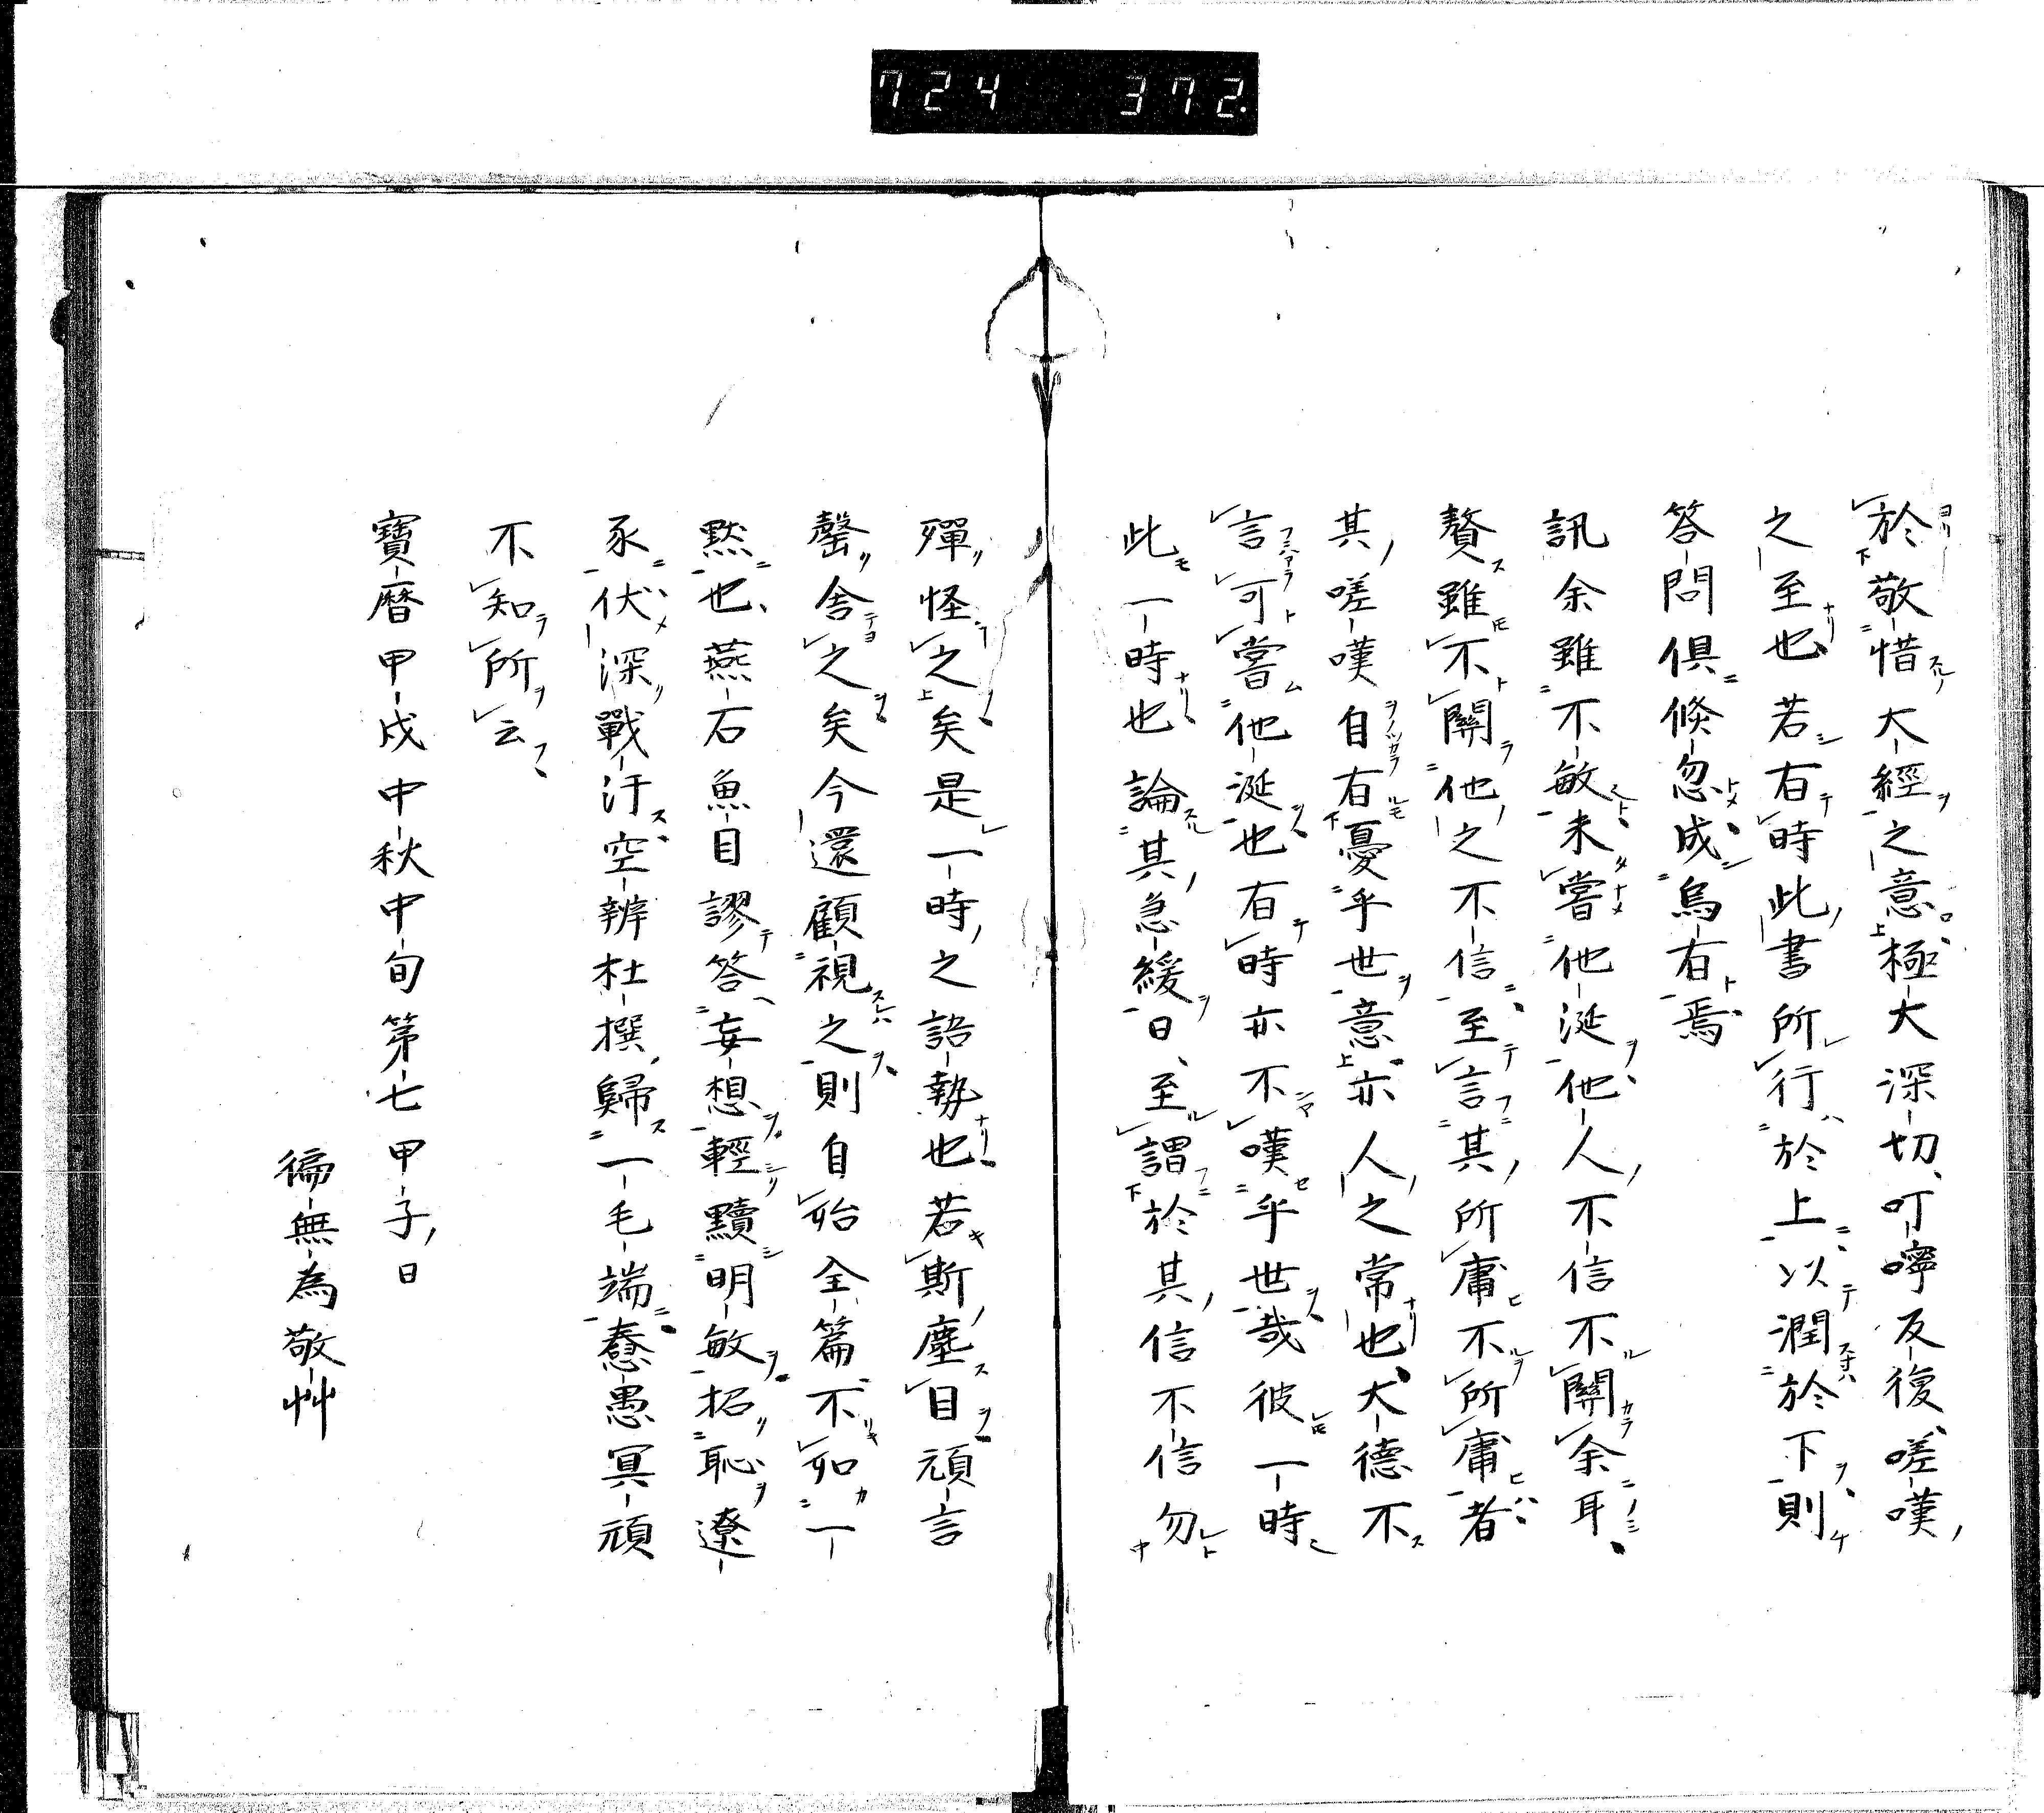 724 372
於敬惜大經之意極大深切叮嚀反復嗟嘆
之至也若有時此書所行於上以潤於下則
答問俱倐忽成烏有焉
訊余雖不敏未嘗他涎他人不信不關余耳
贅雖不關他之不信至言其所庸不所庸者
其嗟嘆自有憂乎世意亦人之常也大德不
言可嘗他涎也有時亦不嘆乎世哉彼一時
此一時也論其急緩日至謂於其信不信勿
殫怪之矣是一時之語勢也若斯塵目頑言
罄舍之矣今還顧視之則自始全篇不如一
默也燕石魚目謬答妄想輕黷明敏招恥遼
豕伏深戰汗空辨杜撰歸一毛端惷愚冥頑
不知所云
寶曆甲戌中秋中旬第七甲子日
徧無為敬艸